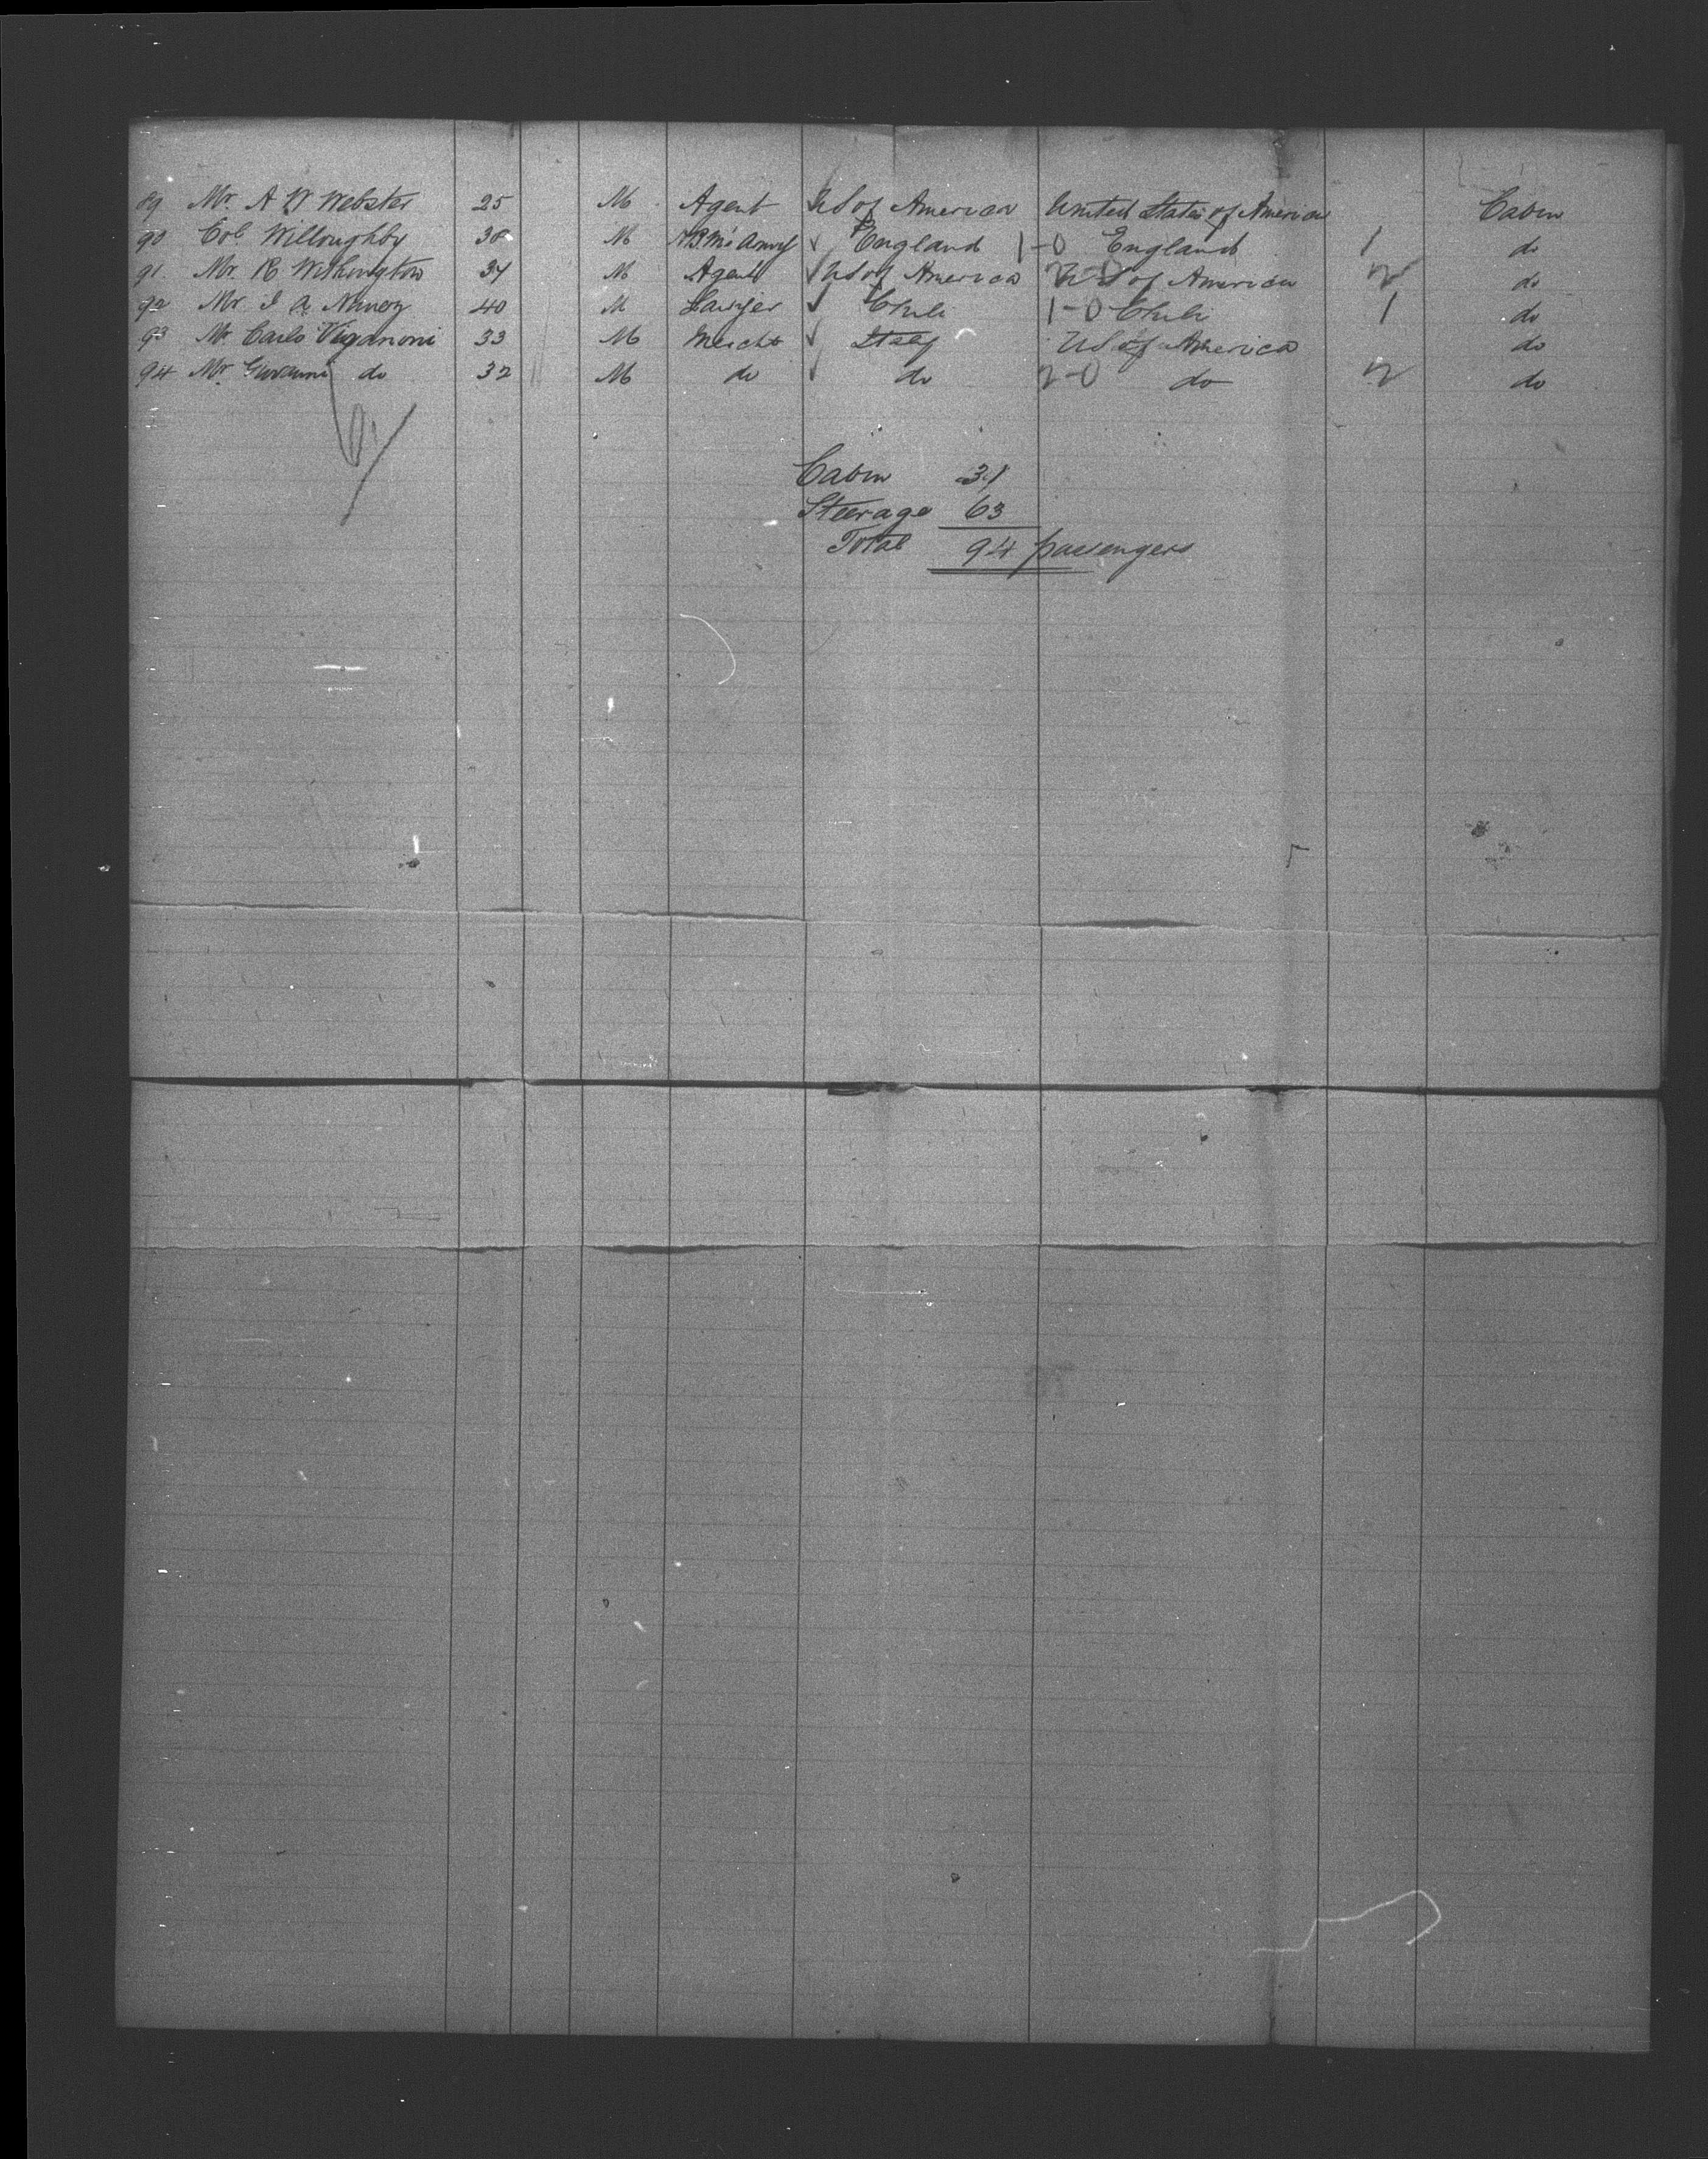 89 Mr. A W Webster 25 M Agent US of America United States of America Cabin
90 Col Willoughby 38 M HBMs Army England 1-0 England 1 do
91. Mr. R Withington 34 M Agent US of America 2-0 US of America 2 do
92 Mr. I A Nunez 40 M Lawyer Chili 1-0 Chili 1 do
93 Mr Carlo Viganoni 33 M Mercht Italy US of America do
94 Mr. Giovanni do 32 M do do 2-0 do 2 do
Cabin 31
Steerage 63
Total 94 passengers